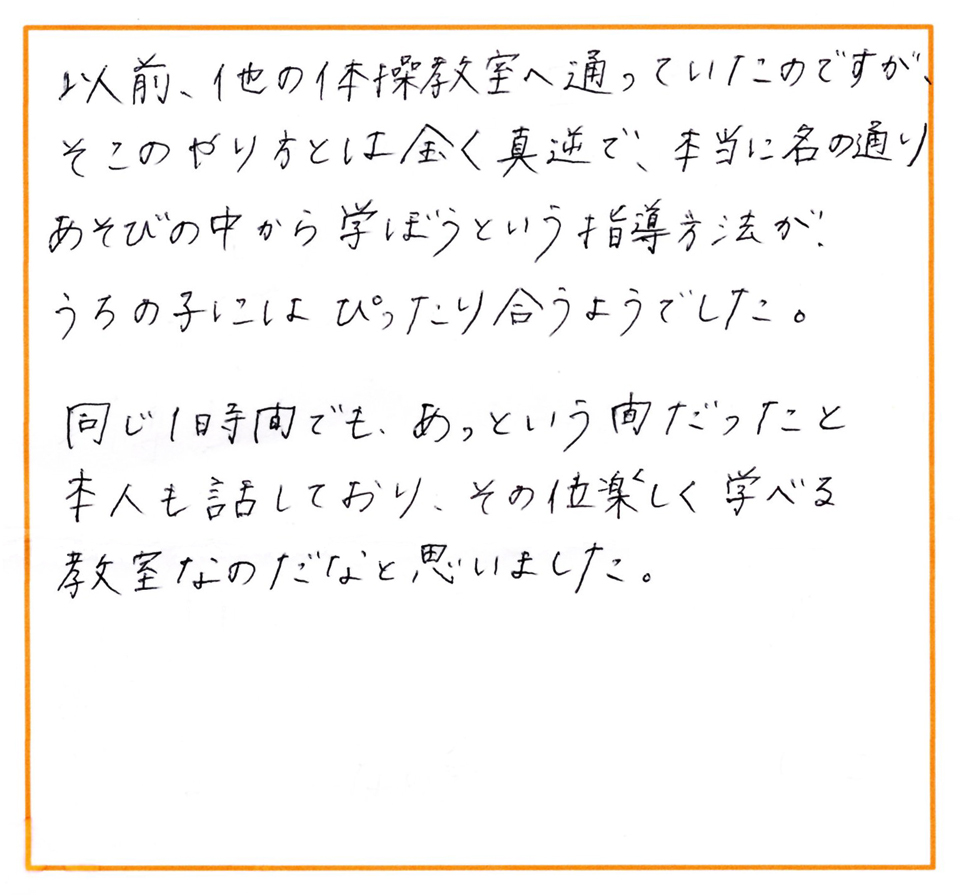 以前、他の体操教室へ通っていたのですが、
そこのやり方とは全く真逆で、本当に名の通り
あそびの中から学ぼうという指導方法が、
うちの子にはぴったり合うようでした。
同じ1時間でも、あっという間だったこと
本人も話しており、その位楽しく学べる
教室なのだなと思いました。